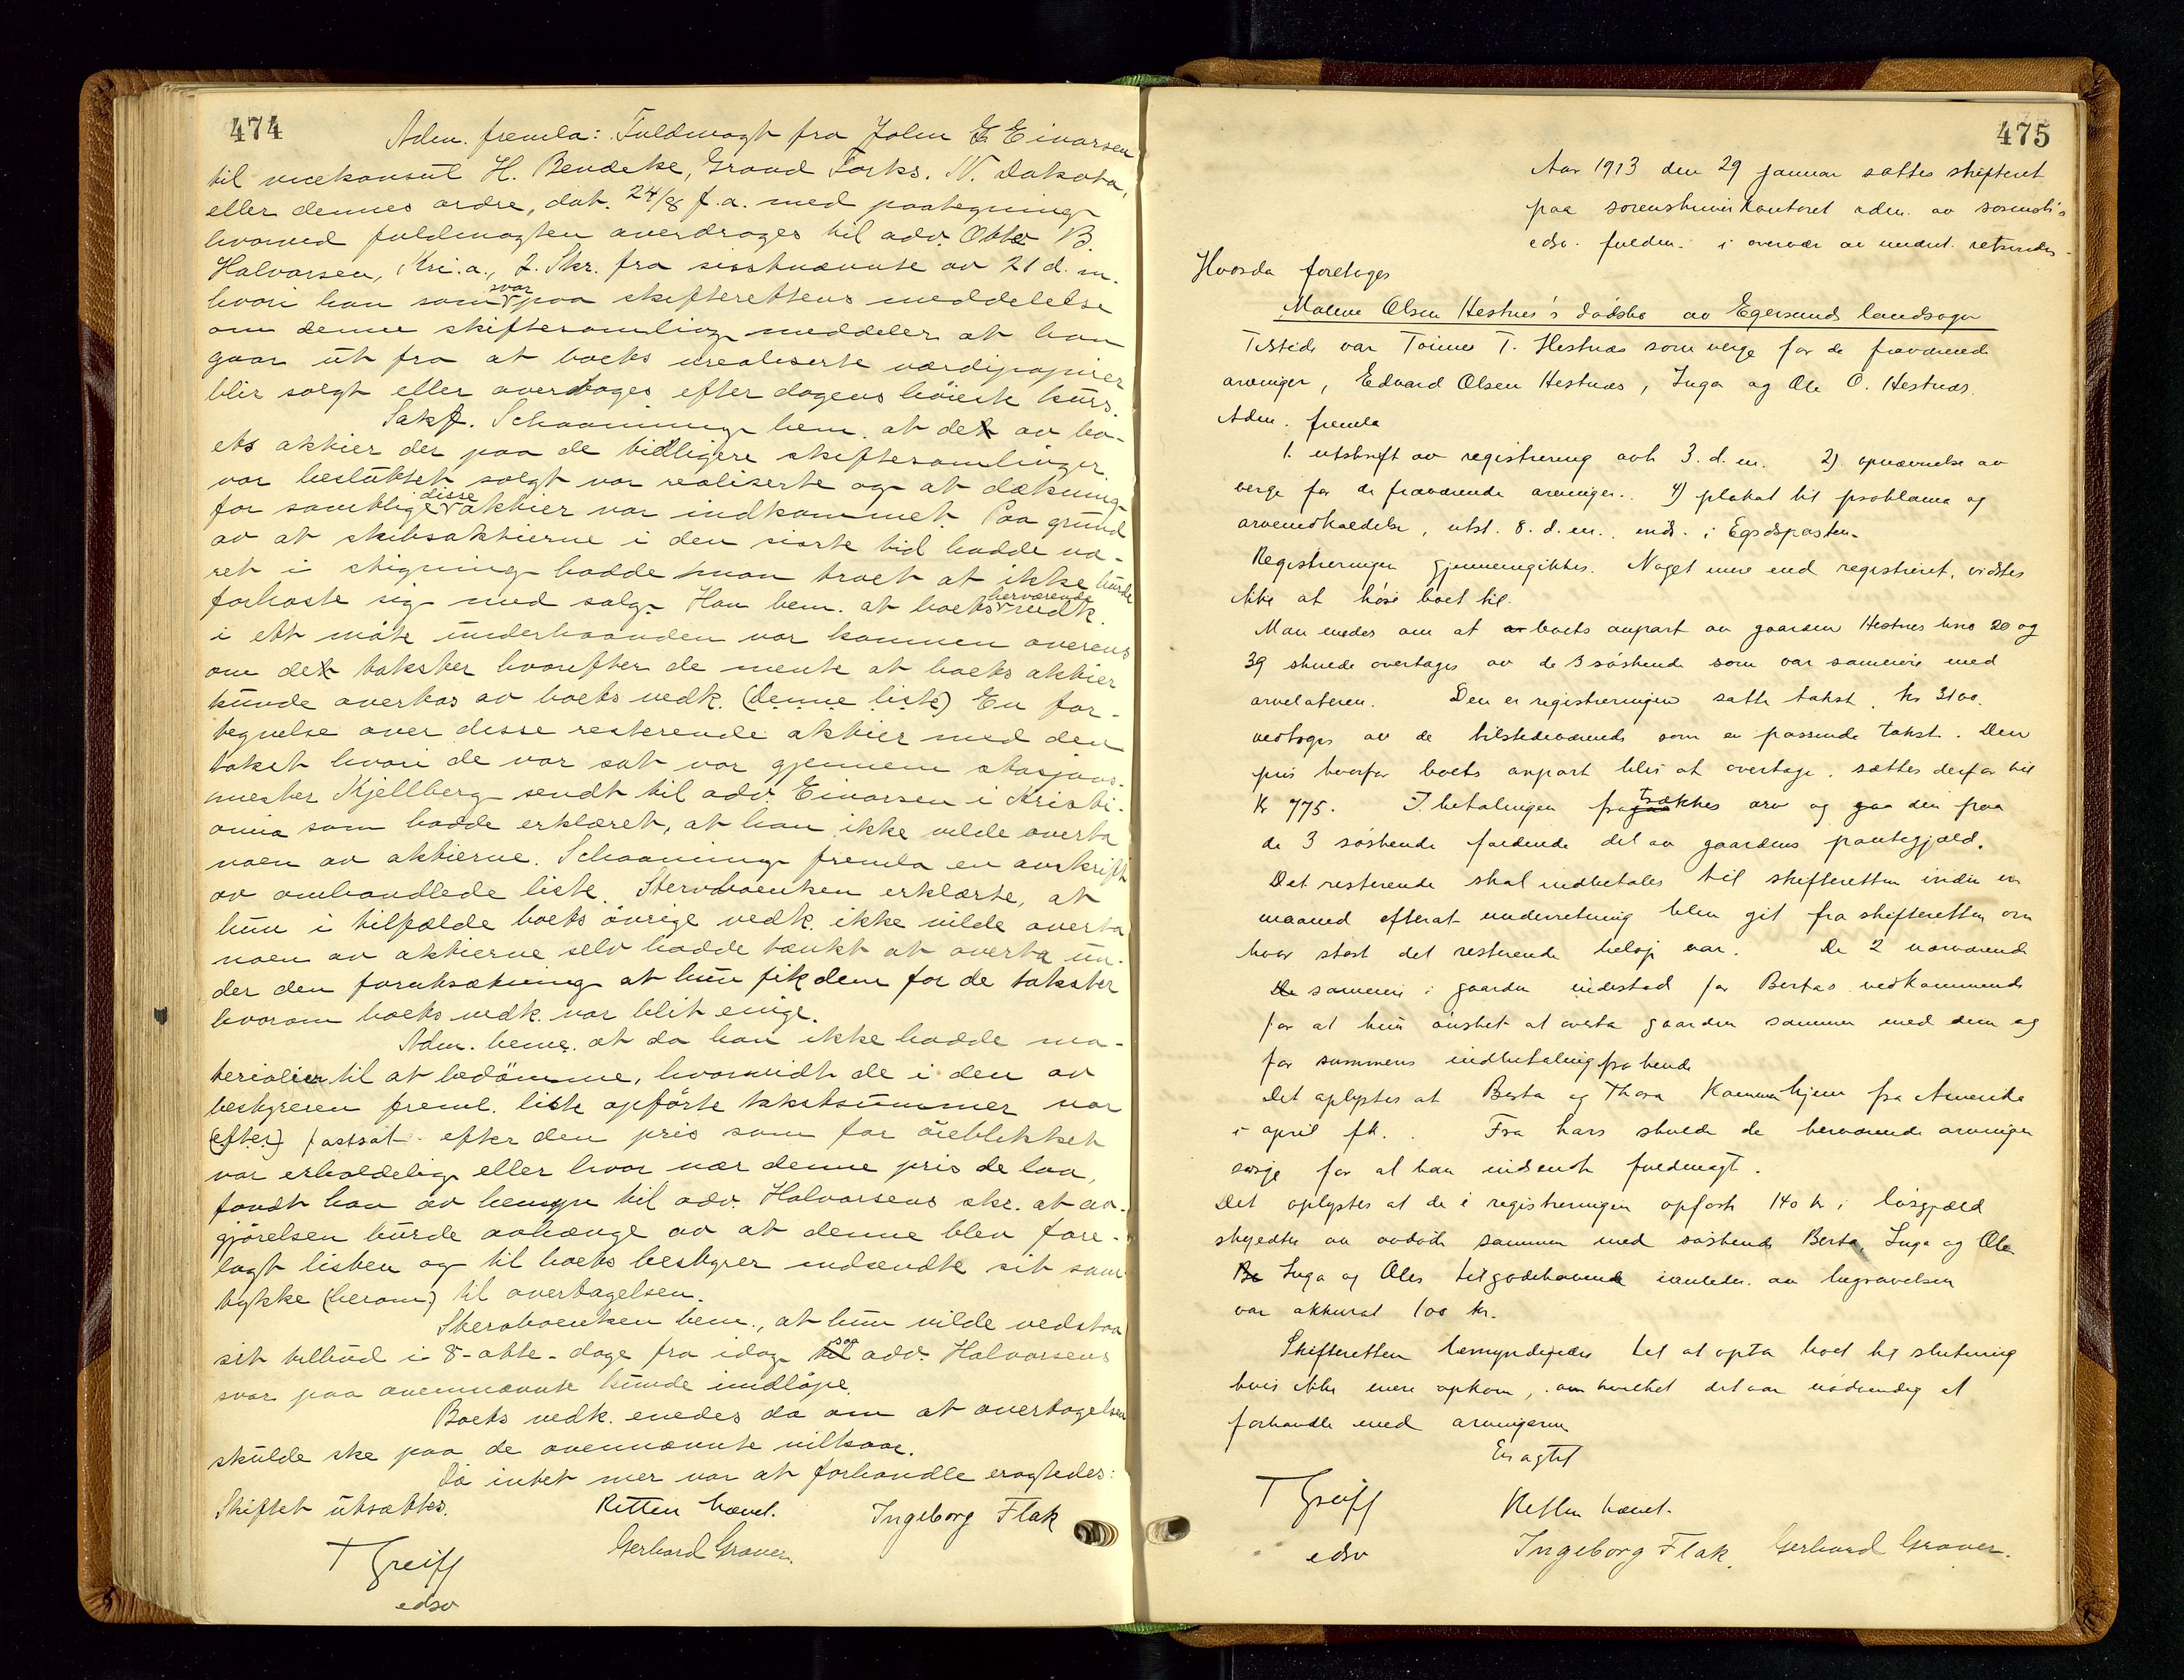 474
Adm. fremla: Fuldmagt fra John E. Einarsen
til vicekonsul H. Bendeke, Grand Forks. N. Dakota,
eller dennes ordre, dat. 24/8 f.a. med paategning
hvorved fuldmagten overdrages til adv. Otto B.
Halvorsen, Kri.a., 2. Skr. fra sisstnævnte av 21 d.m.
hvori han som svar paa skifterettens meddelelse
om denne skiftesamling meddeler at han
gaar ut fra at boets urealiserte værdipapirer
blir solgt eller overtages efter dagens høieste kurs.
Sakf. Schaanning bem. at de av bo-
ets aktier der paa de tidligere skiftesamlinger
var besluttet solgt var realiserte og at dækning
for samtlige disse aktier var indkommet. Paa grund
av at skibsaktierne i den siste tid hadde væ-
ret i stigning hadde man troet at ikke burde
forhaste sig med salg. Han bem. at boets herværende vedk.
i ett møte underhaanden var kommen overens
om de takster hvorefter de mente at boets aktier
kunde overtas av boets vedk. (denne liste) En for-
tegnelse over disse resterende aktier med den
takst hvori de var sat var gjennem stasjons-
mester Kjellberg sendt til adv. Einarsen i Kristi-
ania som hadde erklæret, at han ikke vilde overta
noen av aktierne. Schaanning fremla en avskrift
av omhandlede liste. Stervboenken erklærte, at
hun i tilfælde boets övrige vedk. ikke vilde overta
noen av aktierne selv hadde tænkt at overta un-
der den forutsætning at hun fik dem for de takster
hvorom boets vedk. var blit enige.
Adm. bem. at da han ikke hadde ma-
terialier til at bedömme, hvorvidt de i den av
bestyreren freml. liste opförte takstsummer var
(efter) fastsat efter den pris som for öieblikket
var erholdelig eller hvor nær denne pris de laa,
fandt han av hensyn til adv. Halvorsens skr. at av-
gjörelsen burde avhænge av at denne blev fore-
lagt listen og til boets bestyrer indsendte sit sam-
tykke (herom) til overtagelsen.
Stervboenken bem., at hun vilde vedstaa
sit tilbud i 8-otte-dage fra idag saa adv. Halvorsens
svar paa ovennævnte kunde indlöpe.
Boets vedk. enedes da om at overtagelsen
skulde ske paa de ovennævnte vilkaar.
Da intet mer var at forhandle eragtedes:
Skiftet utsættes.
Retten hævet.
Ingeborg Flak
T Greiff
Gerhard Graver.
edsv
475
Aar 1913 den 29 januar sattes skifteret
paa sorenskriverkontoret adm. av sorenskr's
edsv. fuldm. i overvær av undert. retsvidner
Hvorda foretages
Malene Olsen Hestnes's dødsbo av Egersunds landsogn
Tilstede var Tønnes T. Hestnæs som verge for de fraværende
arvinger, Edvard Olsen Hestnæs, Inga og Ole O. Hestnæs.
Adm. fremla
1. utskrift av registrering avh 3. d.m. 2) opnævnelse av
verge for de fraværende arvinger. 4) plakat til proklama og
arveindkaldelse, utst. 8. d.m. inds. i Egsdsposten.
Registreringen gjennemgikkes. Noget mere end registreret, vidstes
ikke at høre boet til.
Man enedes om at boets anpart av gaarden Hestnes bno 20 og
39 skulde overtages av de 3 søskende som var sameiere med
arvelateren. Den er registreringen satte takst kr 3100.
vedtages av de tilstedeværende som en passende takst. Den
pris hvorfor boets anpart blir at overtage, sættes derfor til
kr 775. I betalingen fratrækkes arv og den paa
de 3 søskende faldende del av gaardens pantegjæld.
Det resterende skal indbetales til skifteretten inden en
maaned efterat underretning blev git fra skifteretten om
hvor stort det resterende beløp var. De 2 nærværende
sameiere i gaarden indestod for Bertas vedkommende
for at hun ønsket at overta gaarden sammen med dem og
for summens indbetaling fra hende
Det oplystes at Berta og Thora kommer hjem fra Amerika
i april fk. Fra Lars skulde de herværende arvinger
sørge for at han indsendte fuldmagt.
Det oplystes at de i registreringen opførte 140 kr i løsgjæld
skyldtes av avdøde sammen med søskende Berta, Inga og Ole
Inga og Oles tilgodehavende i anledn. av begravelsen
var akkurat 100 kr.
Skifteretten bemyndigedes til at opta boet til slutning
hvis ikke mere opkom, om hvilket det var nødvendig at
forhandle med arvingerne
Eragtet
T Greiff
Retten hævet.
edsv
Ingeborg Flak. Gerhard Graver.